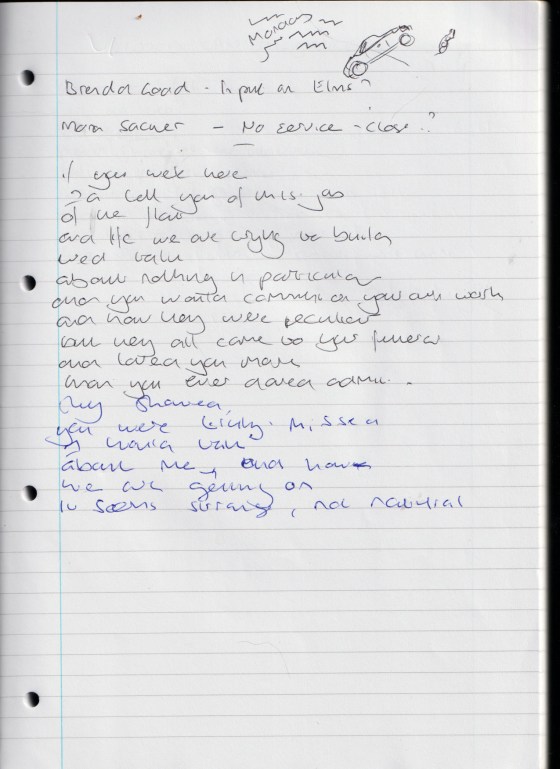 Maracas
Brenda Goad - Input on Elms?
Mara - No service - close?
if you were here
I'd tell you of this job
of the flat
and life we are trying to build
we'd talk
about nothing in particular
and you would comment on your work
and how they were peculiar
but they all came to your funeral
and loved you more
than you ever dared admit.
They shared,
you were truly missed
I would talk
about me, and how
we are getting on
it seems strange, not natural